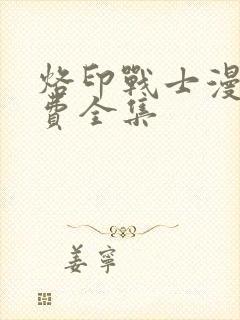 烙印戰士漫
費全集
姜寧